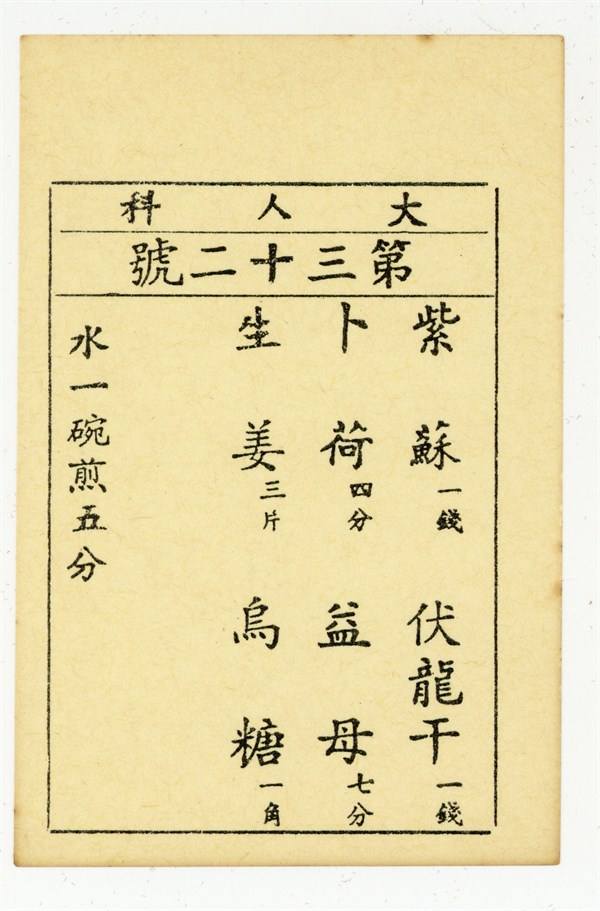 大人科
第三十二號
紫蘇一錢 伏龍干一錢
卜荷四分 益母七分
生姜三片 烏糖一角
水一碗煎五分